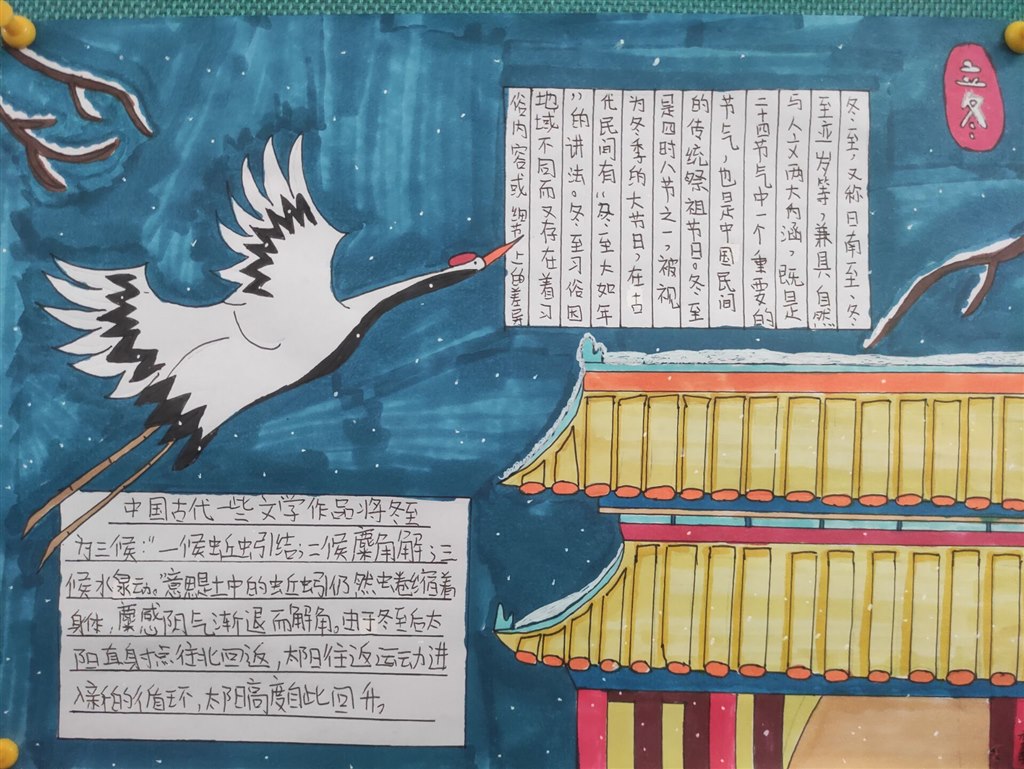 立冬
冬至，又称日南至、冬
至亚岁等，兼具自然
与人文两大内涵，既是
二十四节气中一个重要的
节气，也是中国民间
的传统祭祖节日。冬至
是四时八节之一，被视
为冬季的大节日，在古
代民间有“冬至大如年
”的讲法。冬至习俗因
地域不同而又存在着习
俗内容或细节上的差异
中国古代一些文学作品将冬至
为三候：“一候蚯虫引结；二候麋角解；三
候水泉动。”意思是土中的蚯蚓仍然虫卷缩着
身体，麋感阴气渐退而解角。由于冬至后太
阳直身寸点往北回返，太阳往返运动进
入新的循环，太阳高度自此回升，